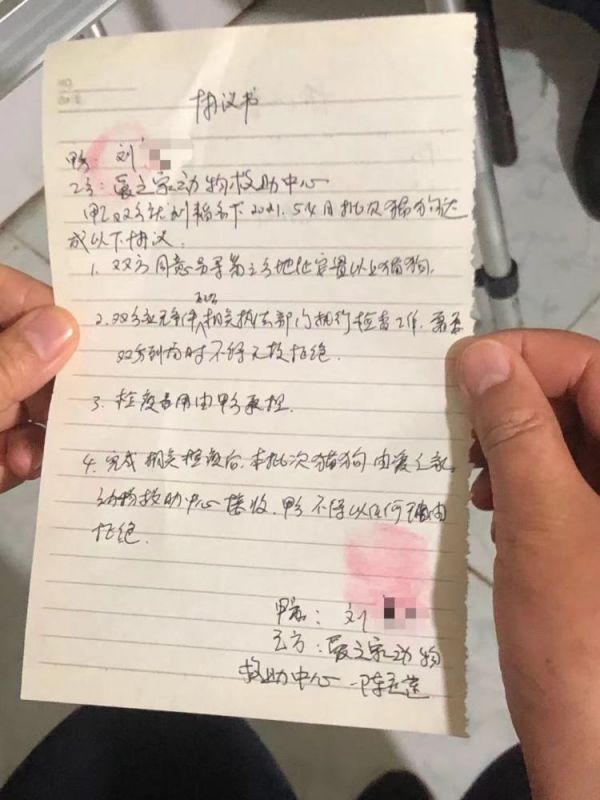 协议书
甲方：刘
乙方：爱之家动物救助中心
甲乙双方就刘 名下2021.5.4日批次猫狗达
成以下协议：
1. 双方同意另寻第三方地址安置以上猫狗.
2. 双方应无条件 配合 相关执法部门执行检查工作，需要
双方到场时不得无故拒绝.
3. 检疫费用由甲方承担.
4. 完成相关检疫后，本批次猫狗由爱之家
动物救助中心接收，甲方不得以任何理由
拒绝.
甲方：刘
乙方：爱之家动物
救助中心 陈